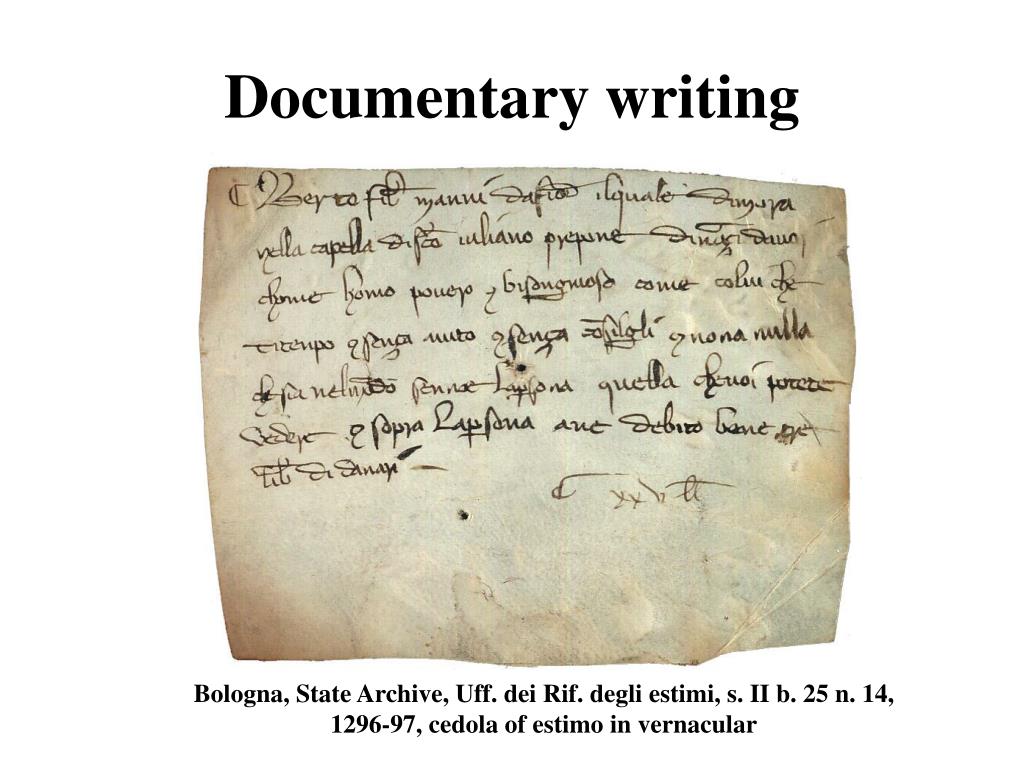 Documentary writing
Berto fil manni ilquale dimora
nella capella di sco iuliano prepone
chome homo povero ⁊ bisongnioso come colui che
⁊ sença aiuto ⁊ sença ⁊ nona nulla
sennoe la psona quella chevoi potete
vedere ⁊ sopra la psona ave debito bene
lib di danari
xxv
Bologna, State Archive, Uff. dei Rif. degli estimi, s. II b. 25 n. 14,
1296-97, cedola of estimo in vernacular